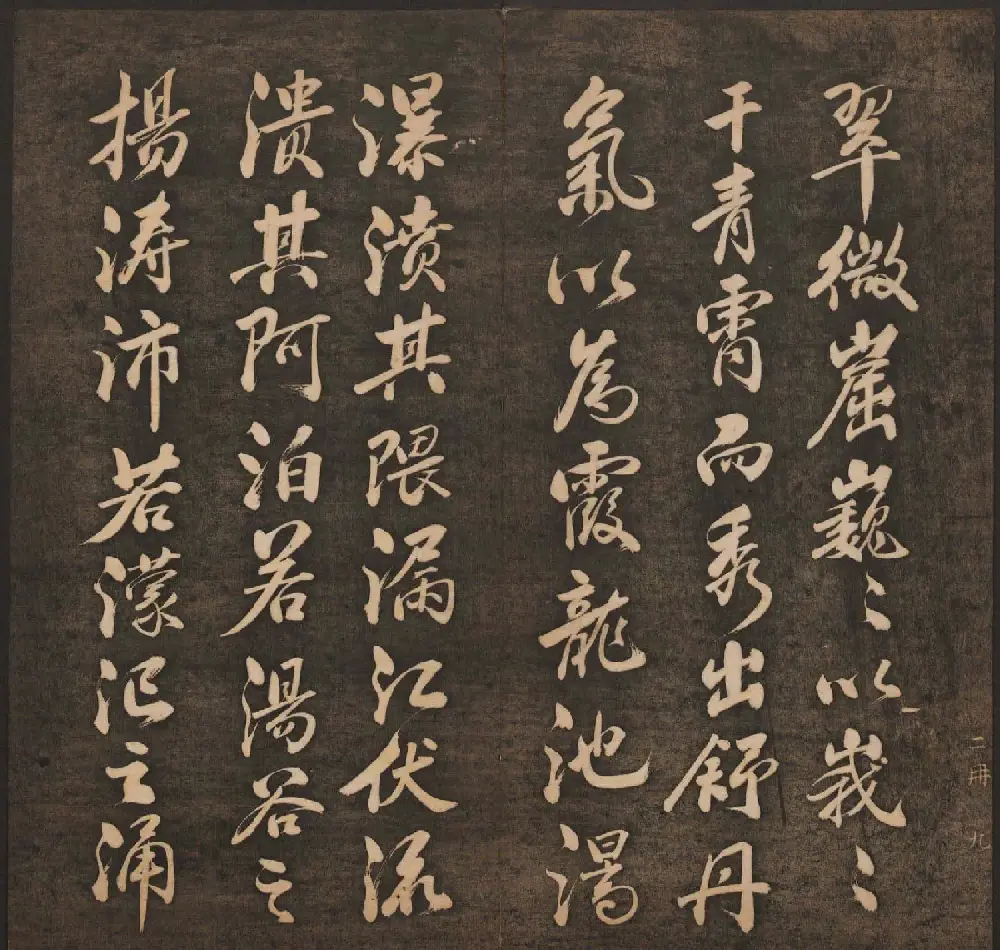 翠微崫巍〻以峩〻
干青霄而秀出舒丹
氣以為霞龍池
瀑濆其隈漏江伏流
潰其阿泊若湯谷之
揚涛沛若濛汜之涌
二冊 九